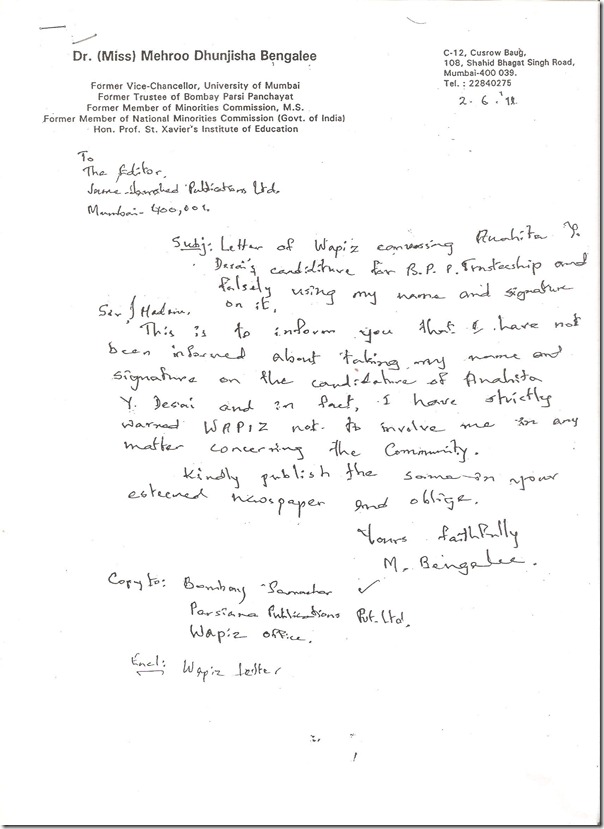 Dr. (Miss) Mehroo Dhunjisha Bengalee
Former Vice-Chancellor, University of Mumbai
Former Trustee of Bombay Parsi Panchayat
Former Member of Minorities Commission, M.S.
Former Member of National Minorities Commission (Govt. of India)
Hon. Prof. St. Xavier's Institute of Education
C-12, Cusrow Baug,
108, Shahid Bhagat Singh Road,
Mumbai-400 039.
Tel. : 22840275
2.6.'11
To
The Editor,
Jame-Jamshed Publications Ltd.
Mumbai- 400,001.
Subj: Letter of Wapiz convassing Anahita Y.
Desai's candiditure for B.P.P. Trusteeship and
falsely using my name and signature
on it.
Sir / Madam.
This is to inform you that I have not
been informed about taking my name and
signature on the candidature of Anahita
Y. Desai and in fact, I have strictly
warned WAPIZ not to involve me in any
matter concerning the Community.
Kindly publish the same in your
esteemed newspaper and oblige.
Yours faithfully
M. Bengalee.
Copy to: Bombay Samachar ✓
Parsiana Publications Pvt. Ltd.
Wapiz Office.
Encl: Wapiz letter